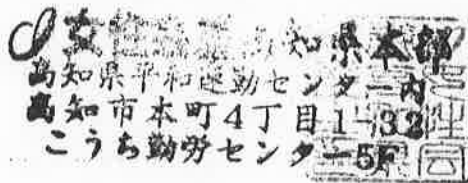 知県本部
高知県平和運動センター内
高知市本町4丁目1-32
こうち勤労センター5F